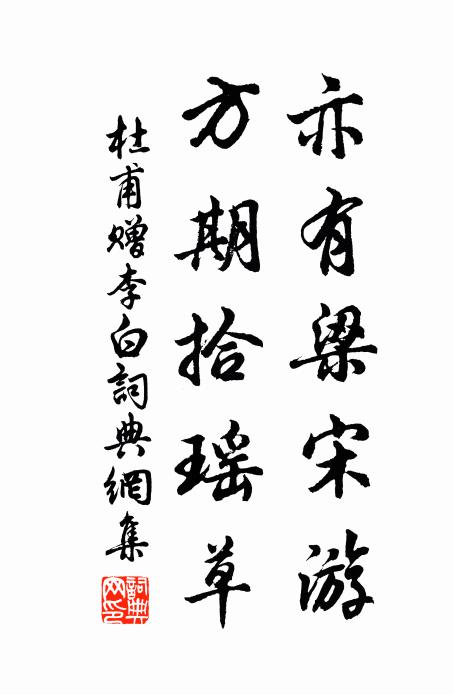 亦有梁宋游
方期拾瑶草
杜甫赠李白詞典網集
詞典網印